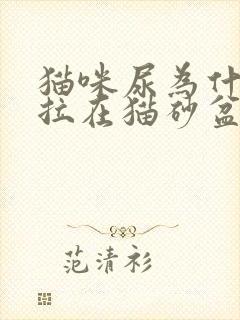 猫咪尿为什
拉在猫砂盆
范清衫